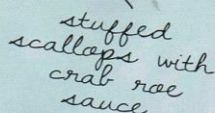 stuffed
scallops with
crab roe
sauce